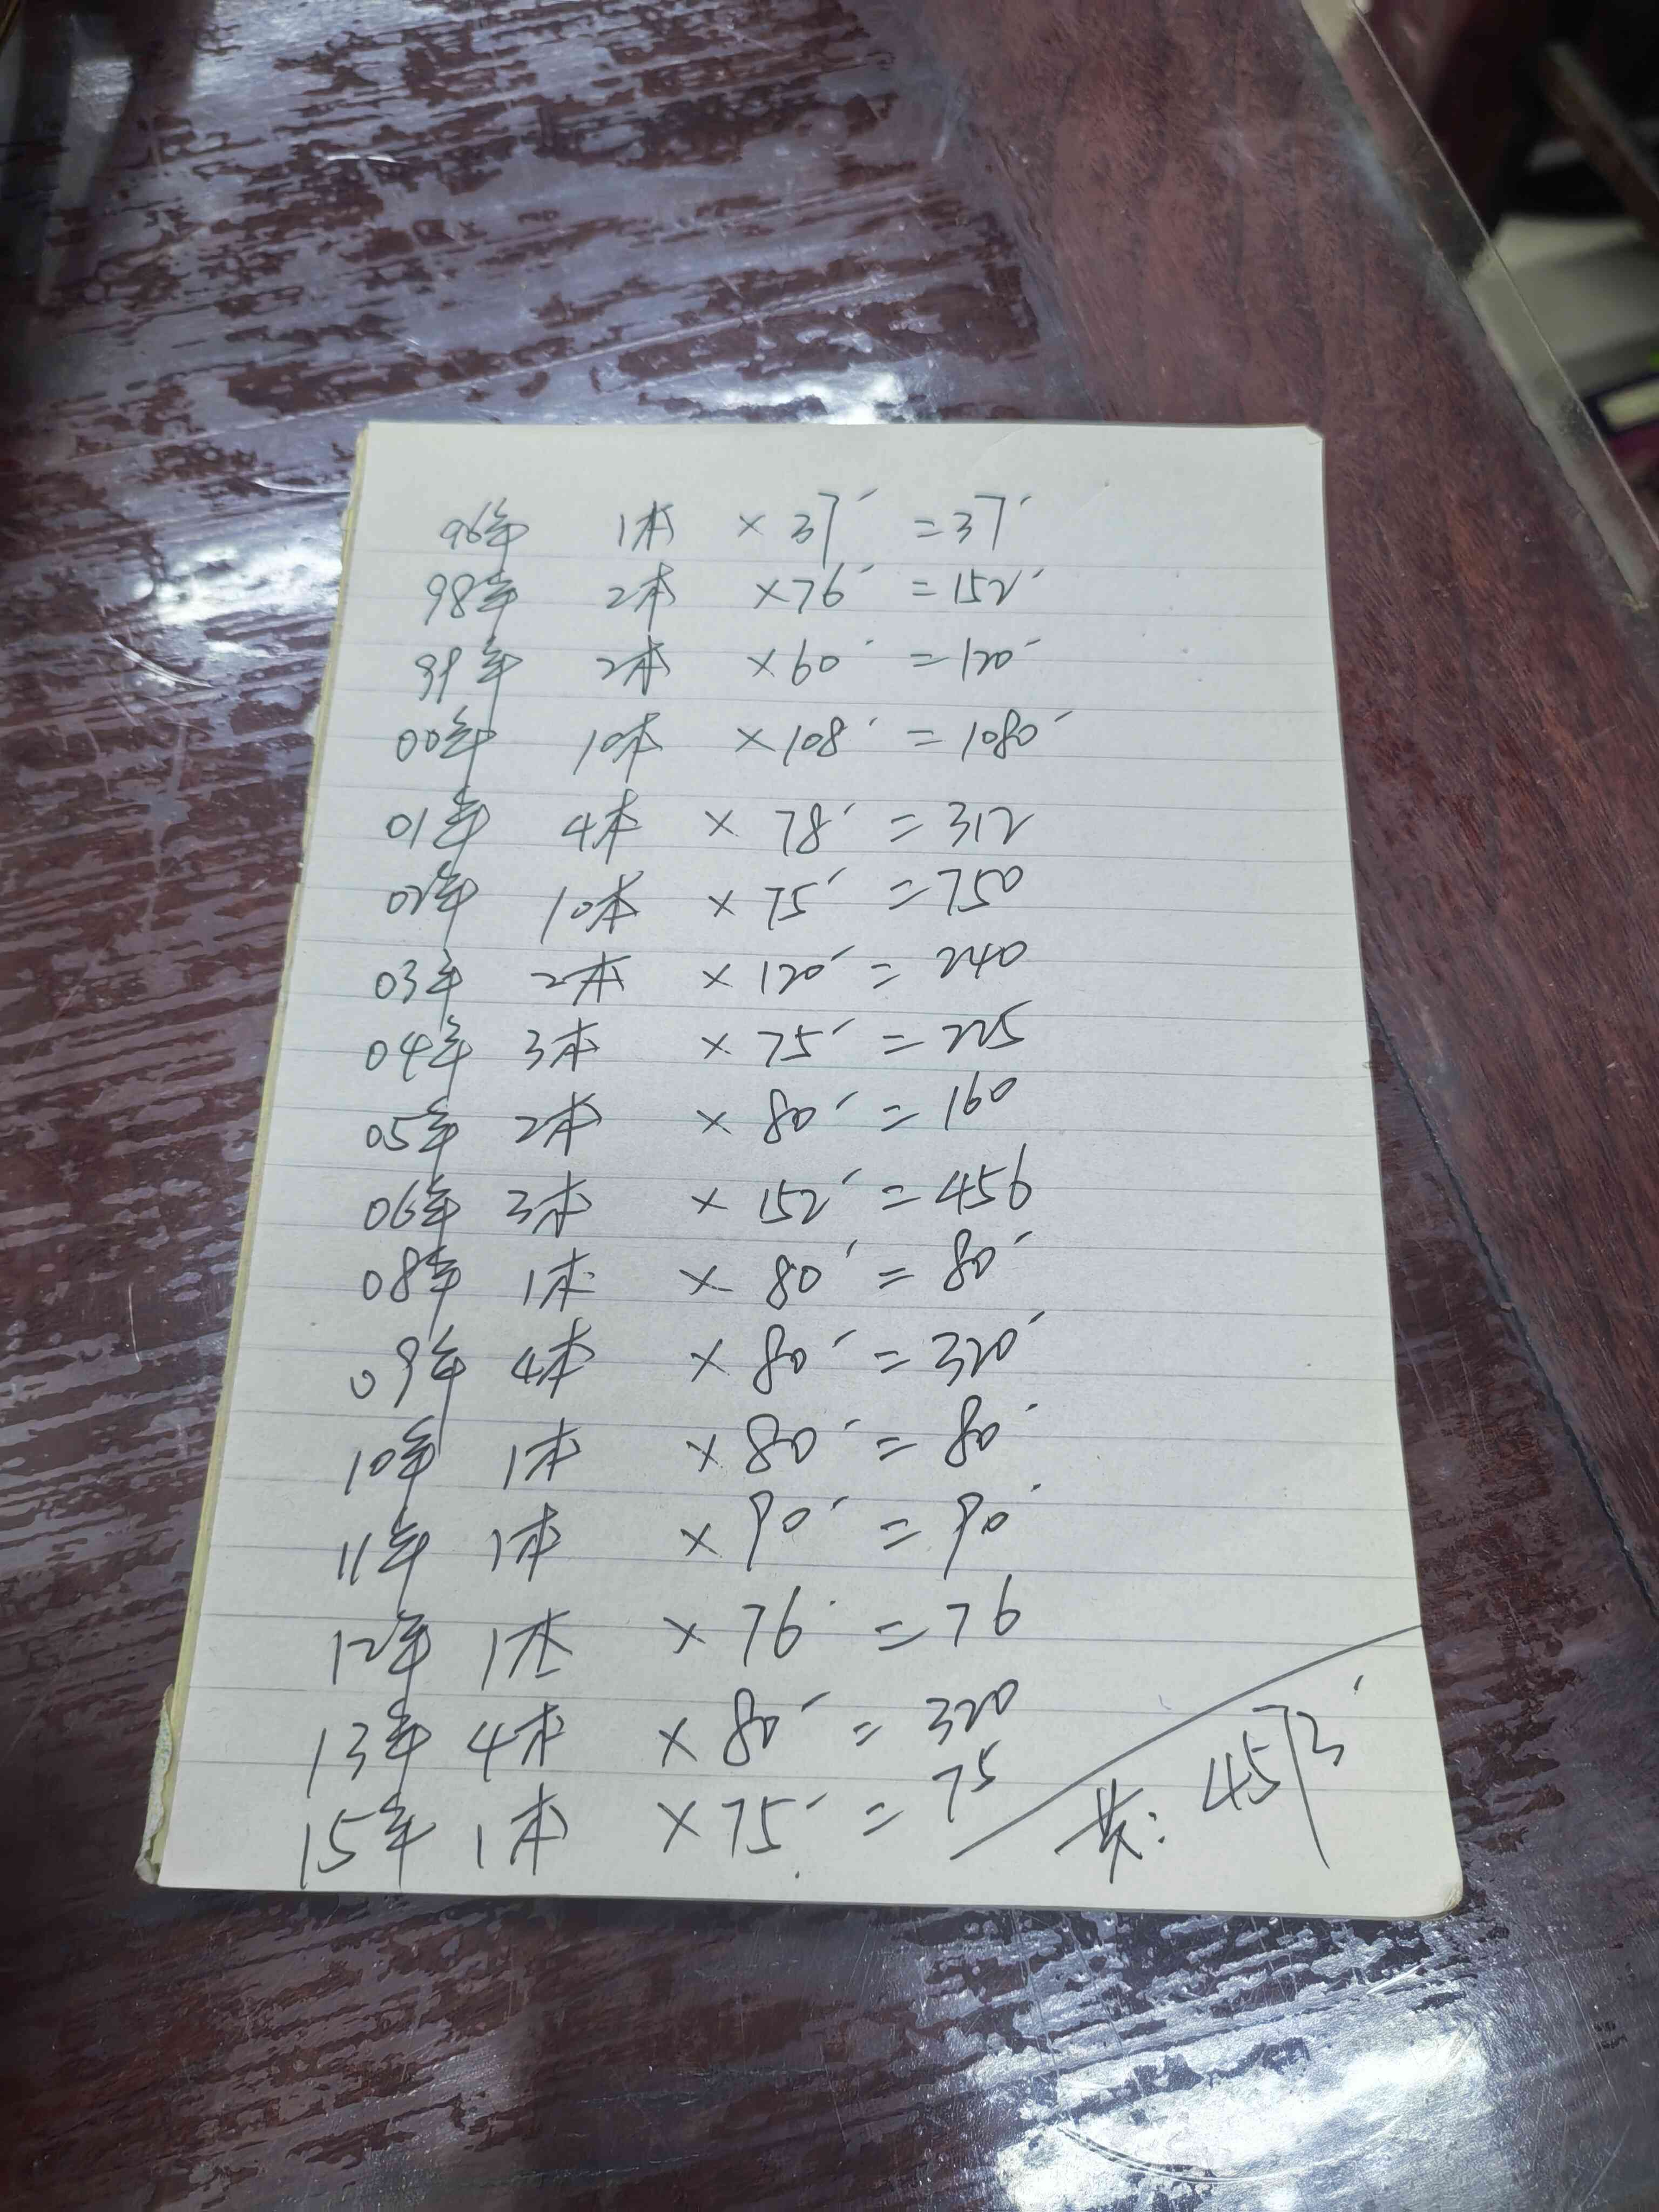 96年 1本 ×37 =37
98年 2本 ×76 =152
99年 2本 ×60 =120
00年 10本 ×108 =1080
01年 4本 ×78 =312
02年 10本 ×75 =750
03年 2本 ×120 =240
04年 3本 ×75 =225
05年 2本 ×80 =160
06年 3本 ×152 =456
08年 1本 ×80 =80
09年 4本 ×80 =320
10年 1本 ×80 =80
11年 1本 ×90 =90
12年 1本 ×76 =76
13年 4本 ×80 =320
15年 1本 ×75 =75
共:4573